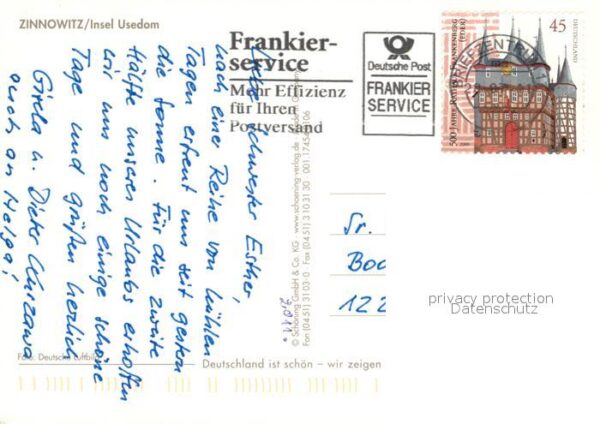 ZINNOWITZ/Insel Usedom
Frankier-
service
Mehr Effizienz
für Ihren
Postversand
Deutsche Post
FRANKIER
SERVICE
45
DEUTSCHLAND
500 Jahre Rathaus Frankenberg
(Eder)
Liebe Schwester Esther,
nach einer Reihe von kühlen
Tagen erfreut uns seit gestern
die Sonne. Für die zweite
Hälfte unseres Urlaubs erhoffen
wir uns noch einige schöne
Tage und grüßen herzlich
Gisela u. Dieter
auch an Helga!
© Schöning GmbH & Co. KG · www.schoening-verlag.de
Fon (04 51) 3 10 3-0
Sr.
122
privacy protection
Datenschutz
Foto: Deutsche Luftbild
Deutschland ist schön – wir zeigen